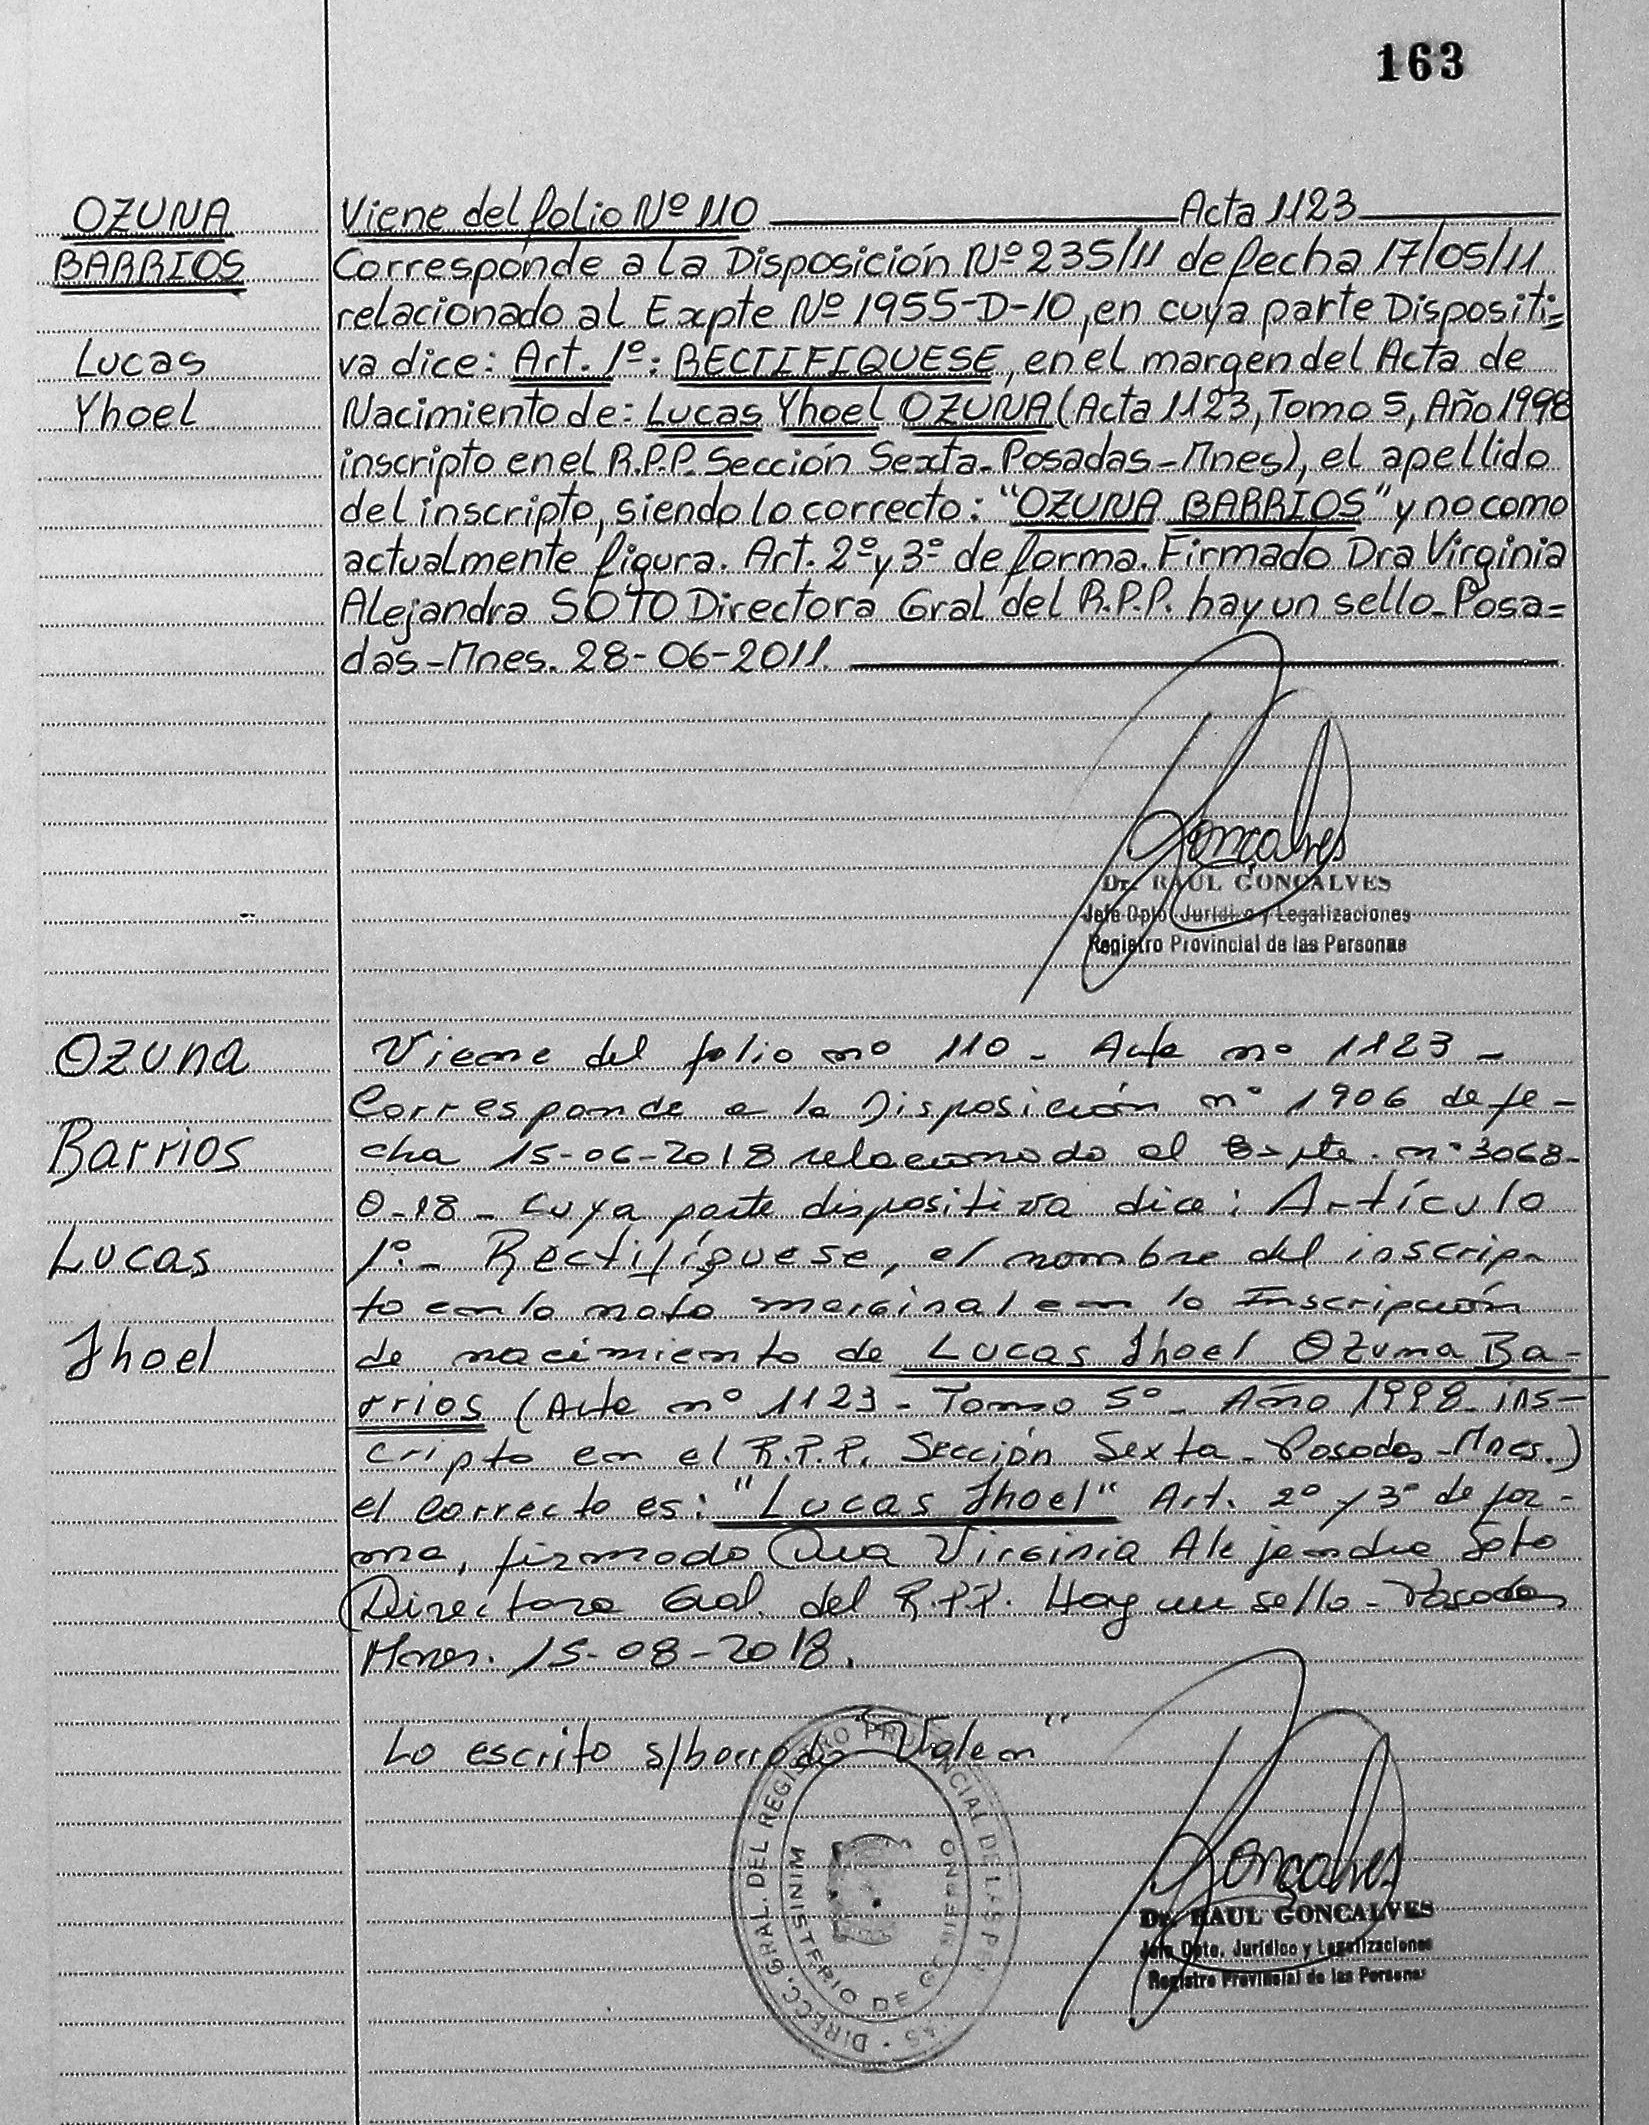 163
OZUNA
BARRIOS
Lucas
Yhoel
Viene del folio Nº 110 Acta 1123
Corresponde a la Disposición Nº 235/11 de fecha 17/05/11
relacionado al Expte Nº 1955-D-10, en cuya parte Dispositi=
va dice: Art. 1º: RECTIFIQUESE, en el margen del Acta de
Nacimiento de: Lucas Yhoel OZUNA (Acta 1123, Tomo 5, Año 1998
inscripto en el R.P.P. Sección Sexta-Posadas-Mnes), el apellido
del inscripto, siendo lo correcto: "OZUNA BARRIOS" y no como
actualmente figura. Art. 2º y 3º de forma. Firmado Dra Virginia
Alejandra SOTO Directora Gral del R.P.P. hay un sello-Posa=
das-Mnes. 28-06-2011.
Gonçalves
Dr. RAUL GONCALVES
Jefe Dpto. Jurídico y Legalizaciones
Registro Provincial de las Personas
Ozuna
Barrios
Lucas
Jhoel
Viene del folio nº 110 - Acta nº 1123 -
Corresponde a la Disposición nº 1906 de fe-
cha 15-06-2018 relacionado al Expte. nº 3068-
O-18 - cuya parte dispositiva dice: Artículo
1º.- Rectifíquese, el nombre del inscrip-
to en la nota marginal en la Inscripción
de nacimiento de Lucas Jhoel Ozuna Ba-
rrios (Acta nº 1123 - Tomo 5º - Año 1998 - ins-
cripto en el R.P.P. Sección Sexta - Posadas - Mnes.)
el correcto es: "Lucas Jhoel" Art. 2º y 3º de for-
ma, firmado Dra Virginia Alejandra Soto
Directora Gral. del R.P.P. Hay un sello - Posadas
Mnes. 15-08-2018.
Lo escrito s/borrado "Valen"
DIRECC. GRAL. DEL REGISTRO PROVINCIAL DE LAS
MINISTERIO DE GOBIERNO
Gonçalves
Dr. RAUL GONCALVES
Jefe Dpto. Jurídico y Legalizaciones
Registro Provincial de las Personas